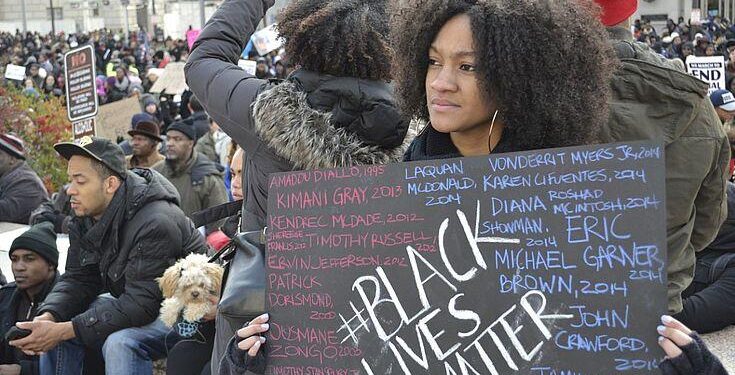 AMADOU DIALLO, 1995
KIMANI GRAY, 2013
KENDREC MCDADE, 2012
TIMOTHY RUSSELL
ERVIN JEFFERSON, 2012
PATRICK
DORISMOND,
OUSMANE
ZONGO
TIMOTHY STANSBURY JR.
LAQUAN
MCDONALD,
2014
VONDERRIT MYERS JR, 2014
KAREN CIFUENTES, 2014
DIANA
SHOWMAN,
2014
ROSHAD
MCINTOSH, 2014
ERIC
GARNER
2014
MICHAEL
BROWN, 2014
JOHN
CRAWFORD,
2014
#BLACK
LIVES
MATTER
END